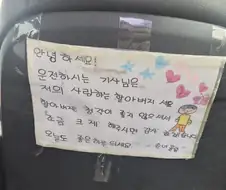 안녕하세요!
운전하시는 기사님은
저의 사랑하는 할아버지 세요
할아버지는 청각이 좋지 않으셔서
조금 크게 해주시면 감사
오늘도 좋은하루 되세요